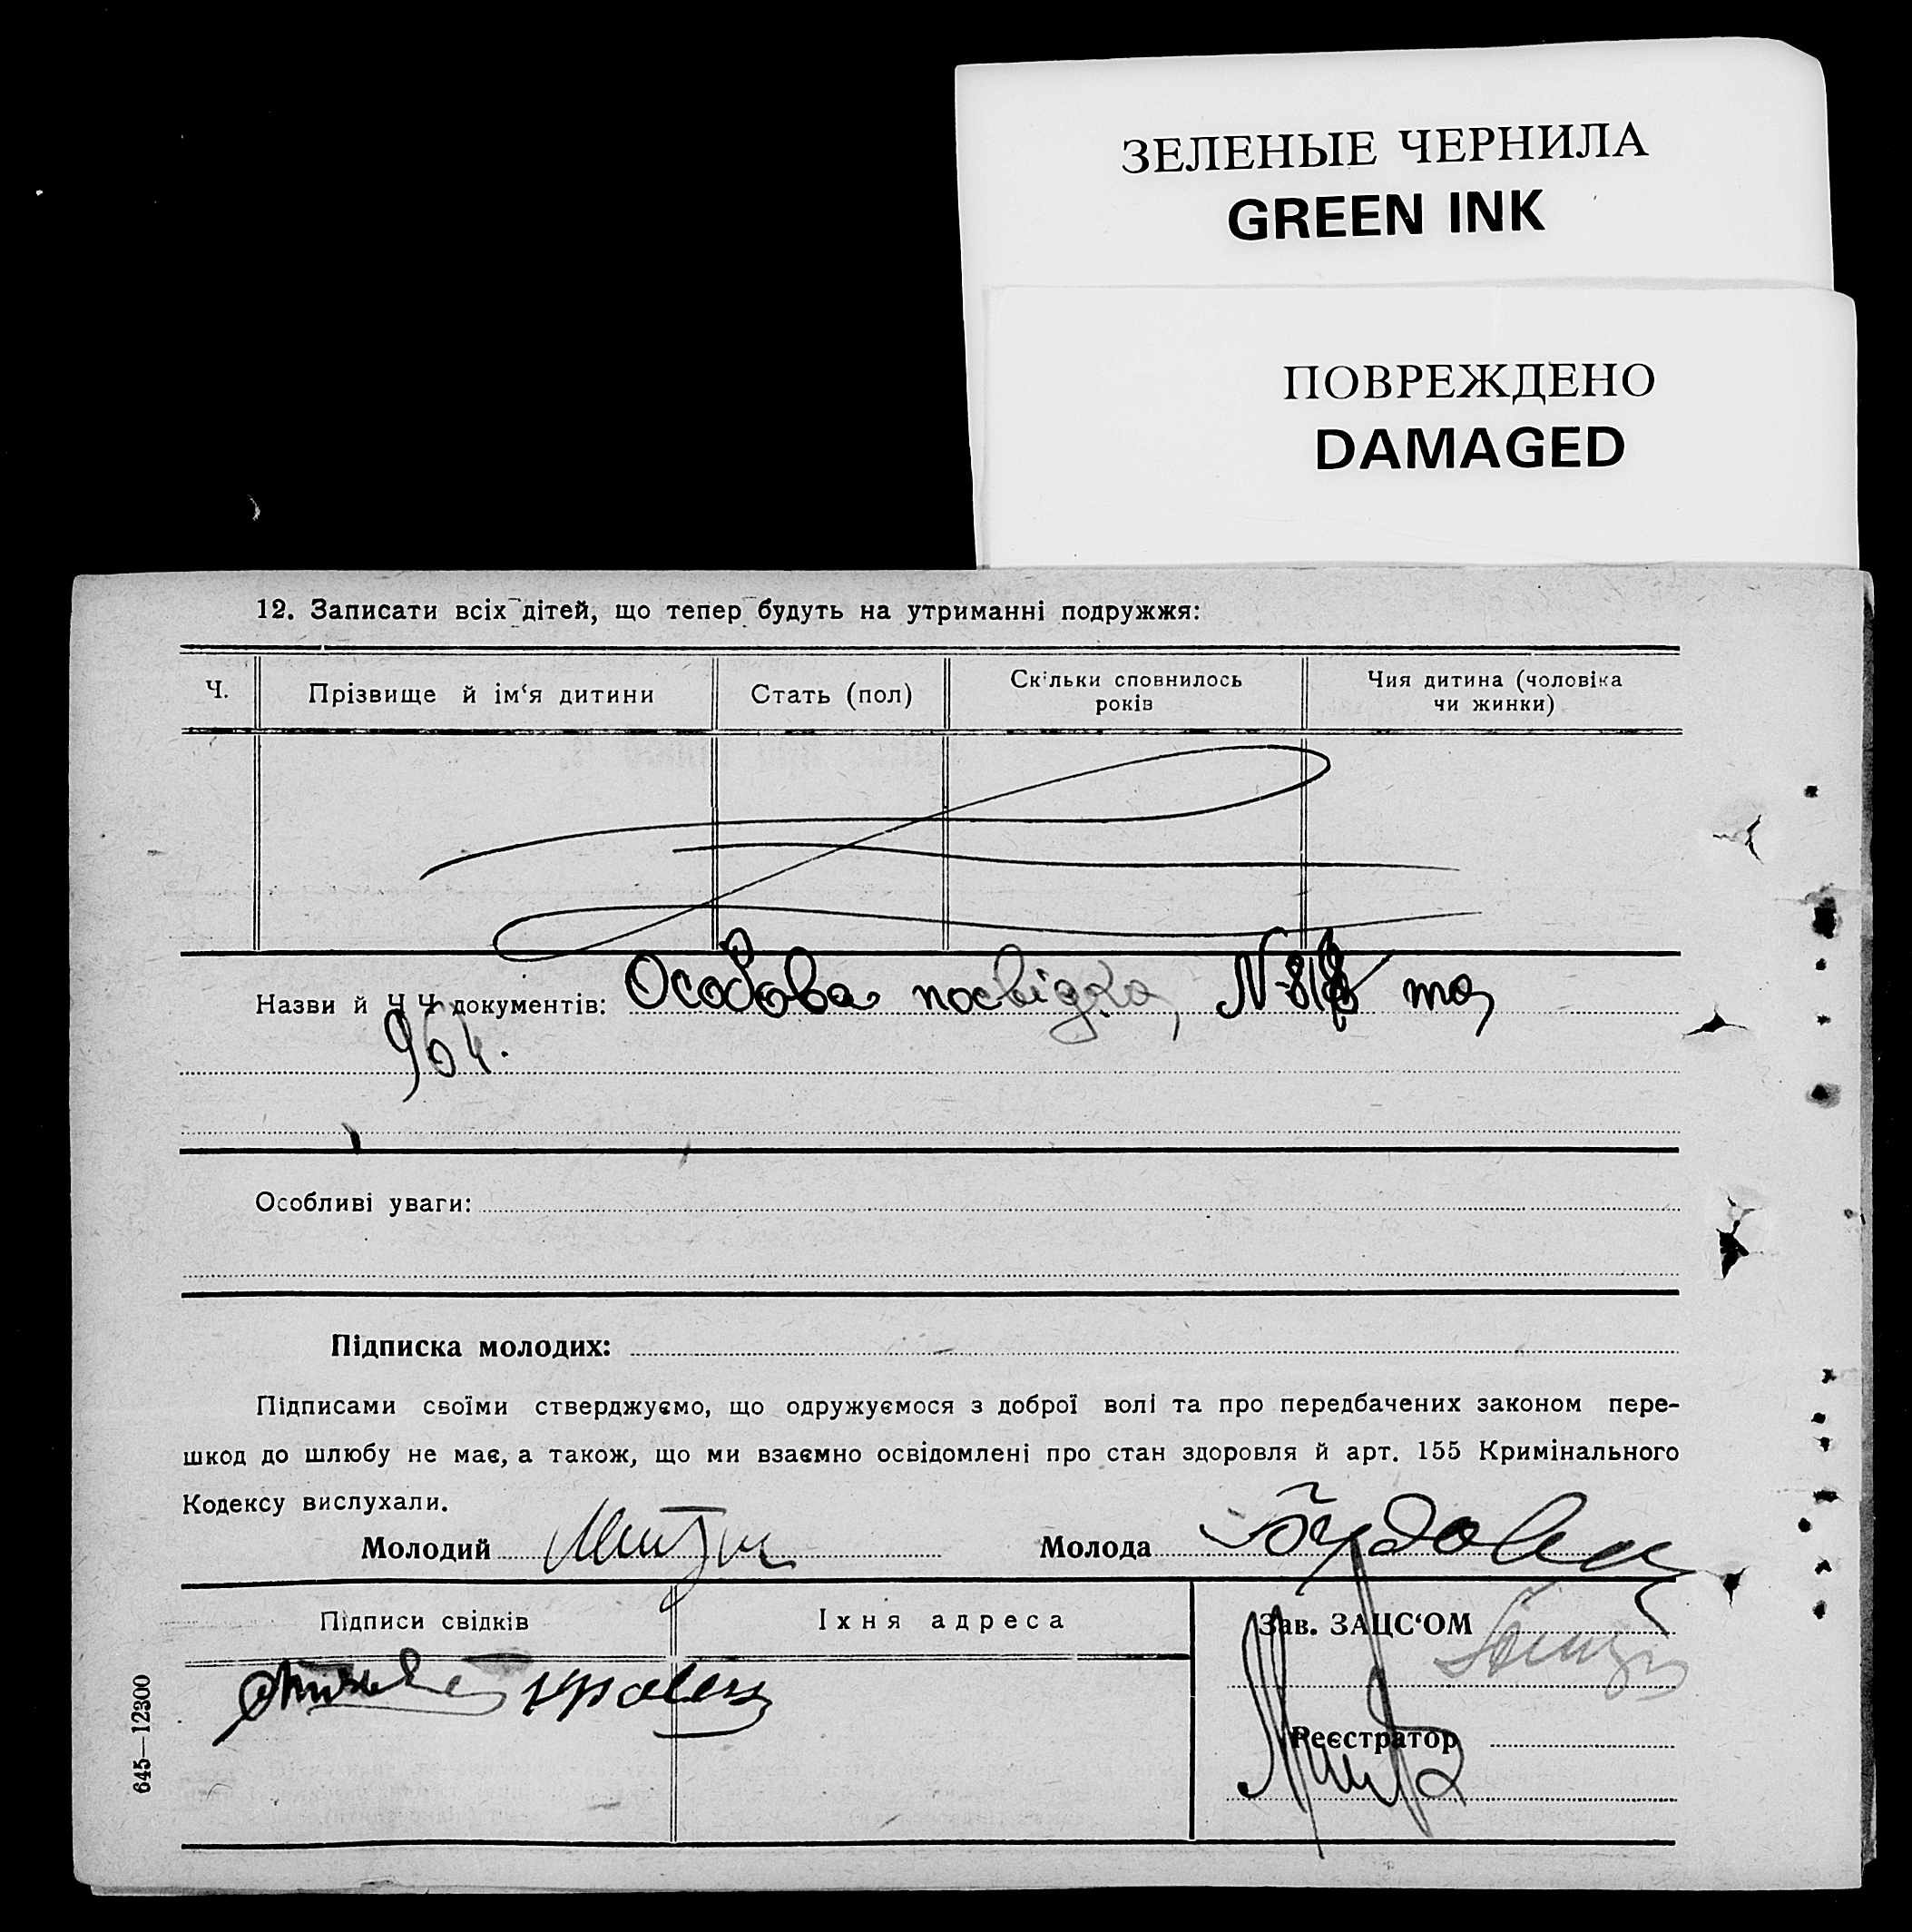 ЗЕЛЕНЫЕ ЧЕРНИЛА
GREEN INK
ПОВРЕЖДЕНО
DAMAGED
12. Записати всіх дітей, що тепер будуть на утриманні подружжя:
Ч.
Прізвище й ім‘я дитини
Стать (пол)
Скільки сповнилось
років
Чия дитина (чоловіка
чи жинки)
Назви й Ч Ч документів: Особова посвідка, та
964.
Особливі уваги:
Підписка молодих:
Підписами своїми стверджуємо, що одружуємося з доброї волі та про передбачених законом пере-
шкод до шлюбу не має, а також, що ми взаємно освідомлені про стан здоровля й арт. 155 Кримінального
Кодексу вислухали.
Молодий
Молода
Підписи свідків
Їхня адреса
Зав. ЗАЦС‘ОМ
Реєстратор
645—12300